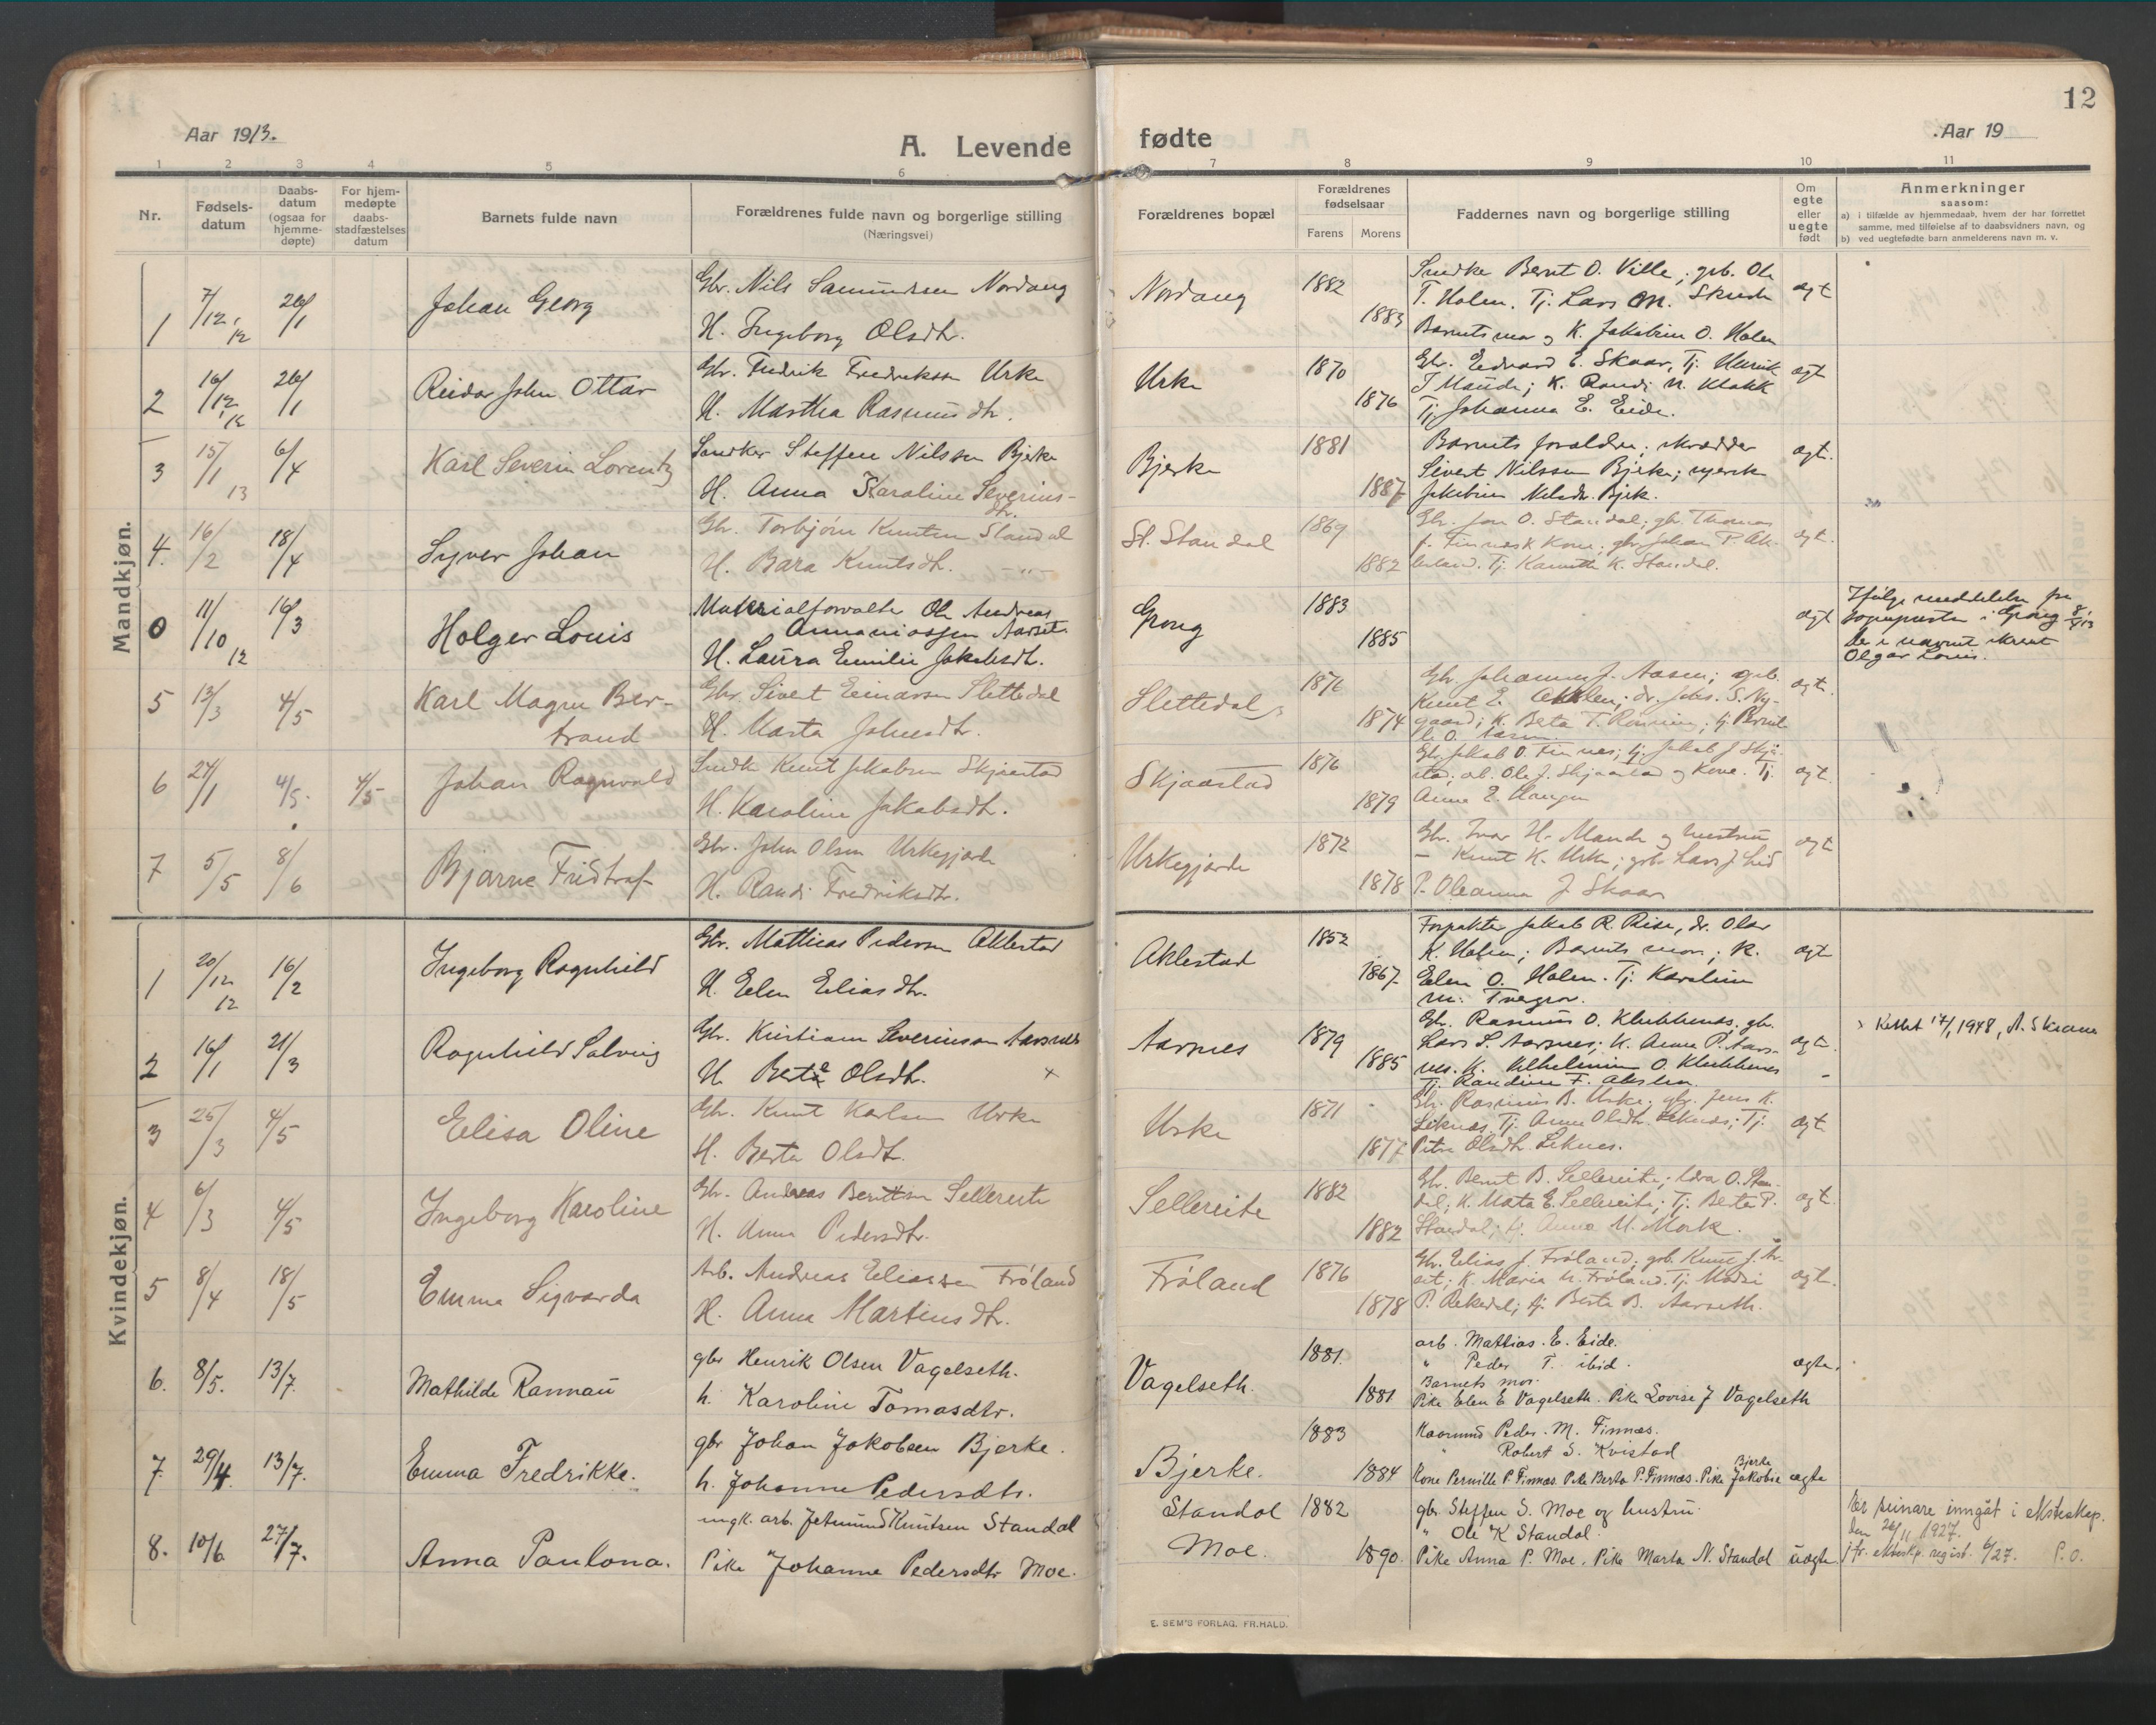 12
Aar 1913.
A. Levende fødte
Aar 19
1 2 3 4 5 6 7 8 9 10 11
Nr.
Fødsels-
datum
Daabs-
datum
(ogsaa for
hjemme-
døpte)
For hjem-
medøpte
daabs-
stadfæstelses
datum
Barnets fulde navn
Forældrenes fulde navn og borgerlige stilling
(Næringsvei)
Forældrenes bopæl
Forældrenes
fødselsaar
Farens Morens
Faddernes navn og borgerlige stilling
Om
egte
eller
uegte
født
Anmerkninger
saasom:
a) i tilfælde av hjemmedaab, hvem der har forrettet
samme, med tilføielse af to daabsvidners navn, og
b) ved uegtefødte barn anmelderens navn m. v.
Mandkjøn.
1 7/12 12 26/1 Johan Georg
Gbr. Nils Samundsen Nordang
H. Ingeborg Olsdtr.
Nordang 1882 1883
Snedker Bernt O. Ville; grb. Ole
T. Holen. Tj. Lars M. Skrede
Barnets mor og K. Jakobine O. Holen
ægt
2 16/12 12 26/1 Reidar John Ottar
Gbr. Fredrik Fredriksen Urke
H. Martha Rasmusdtr.
Urke 1870 1876
Gbr. Edvard E. Skaar, Tj. Henrik
J Maude; K. Randi N. Klokk
Tj. Johanna E. Eide.
ægt
3 15/1 13 6/4 Karl Severin Lorentz
Snedker Steffen Nilssen Bjerke
H. Anna Karoline Severins-
dtr.
Bjerke 1881 1887
Barnets foreldre; skrædder
Sivert Nilssen Bjerke;
Jakobine Nilsdr. Bjerk.
ægt.
4. 16/2 18/4 Syver Johan
Gbr. Torbjørn Knutsen Standal
H. Bara Knutsdtr. -"-
St. Standal 1869 1882
Gbr. Jon O. Standal; gbr. Thomas
Kone; gbr. Johan P. Ak-
Tj. K. Standal.
ægt.
0 11/10 12 16/3 Holger Louis
Materialforvalter Ole Andreas
Annaniassen Aarset.
H. Laura Emilie Jakobsdtr.
Grong 1883 1885
ægt
Ifølge meddelelse fra
sognepresten i Grong 8/5 13
Olgar Louis.
5 13/3 4/5 Karl Magne Ber-
trand
Gbr. Sivert Einarsen Slettedal
H. Marta Johnsdtr.
Slettedal 1874
Gbr. Johannes J. Aasen; grb.
Knut E.
K. Berta T.
ægte.
6 24/1 4/5. 4/5 Johan Ragnvald
Snedk. Knut Jakobsen Skjaastad
H. Karoline Jakobsdtr.
Skjaastad 1876 1879
Gbr. Jakob O. Finnes; tj. Jakob J Skjå-
stad; Ole J. Skjaastad og Kone. Tj.
Anne E. Haugen
ægt.
7 5/5 8/6 Bjarne Fridtraf
Gbr. John Olsen Urkegjærde
H. Randi Fredriksdtr.
Urkegjerde 1872 1878
Gbr. Ivar H. Maude og hustru
– Knut K. Urke; grb. Lars J Lied
P. Oleanna J. Skaar
ægt
Kvindekjøn.
1 20/12 12 16/2 Ingeborg Ragnhild
Gbr. Mattias Pedersen Aklestad
H. Elen Eliasdtr.
Aklestad 1852 1867.
Forpakter Jakob R. Risa, dr. Olav
K. Holen; Barnets mor; K.
Elen O. Holen. Tj. Karoline
M. Tvergrov.
ægt
2 16/1 21/3 Ragnhild Solveig
Gbr. Kristian Severinsen Aarsnes
H. Berte Olsdtr. x
Aarsnes 1879 1885
Gbr. Rasmus O. Klubbenes. gbr.
Lars S. Aarsnes; K. Anna P. Aars-
nes. K. Vilhelmine O. Klubbenes
Tj. Randine F.
ægt.
x Rettet 17/1 1948, A.
3 25/3 4/5 Elisa Oline
Gbr. Knut Karlsen Urke
H. Berta Olsdtr.
Urke 1871 1877
Gbr. Rasmus B. Urke; gbr. Jens K.
Leknes. Tj. Anne Olsdtr. Leknes; Tj.
Petra Olsdtr. Leknes.
ægt
4 6/3 4/5 Ingeborg Karoline
Gbr. Andreas Berntsen Sellereite
H. Anna Pedersdtr.
Sellereite 1882 1882
Gbr. Bernt B. Sellereite; O. Stan-
dal; K. Mata E. Sellereite; Tj. Berte P.
Standal; tj. Anna M. Mork.
ægt.
5 8/4 18/5 Emma Sigvarda
Arb. Andreas Eliassen Frøland
H. Anna Martinsdtr.
Frøland 1876 1878
Gbr. Elias J. Frøland; grb. Knut J. Ar-
set; K. Maria N. Frøland. Tj.
P. Rekedal; tj. Berte B. Aarseth.
ægt.
6. 8/5. 13/7. Mathilde Rannau
gbr Henrik Olsen Vagelseth.
h. Karoline Tomasdtr.
Vagelseth. 1881. 1881
arb. Mattias. E. Eide.
" Peder T. ibid.
Barnets mor.
Pike Elen E Vagelseth. Pike Lovise J Vagelseth
ægte.
7. 29/4. 13/7. Emma Fredrikke.
gbr Johan Jakobsen Bjerke.
h. Johanne Pedersdtr.
Bjerke. 1883 1884
Peder. M. Finnæs.
" Robert S. Kvistad
Bjerke
Kone Pernille P. Finnæs. Pike Berta P. Finnæs. Pike Jakobie
ægte
8. 10/6. 27/7. Anna Paulona.
ungk. arb. Jetmund Knutsen Standal
Pike Johanne Pedersdtr Moe.
Standal Moe. 1882 1890.
gbr Steffen S. Moe og hustru.
" Ole K Standal.
Pike Anna P. Moe. Pike Marta N. Standal
uægte.
Har seinare inngåt i ekteskap.
den 26/11 1927.
jfr. ekteskp. regist. 6/27. P.O.
E. SEM'S FORLAG. FR.HALD.